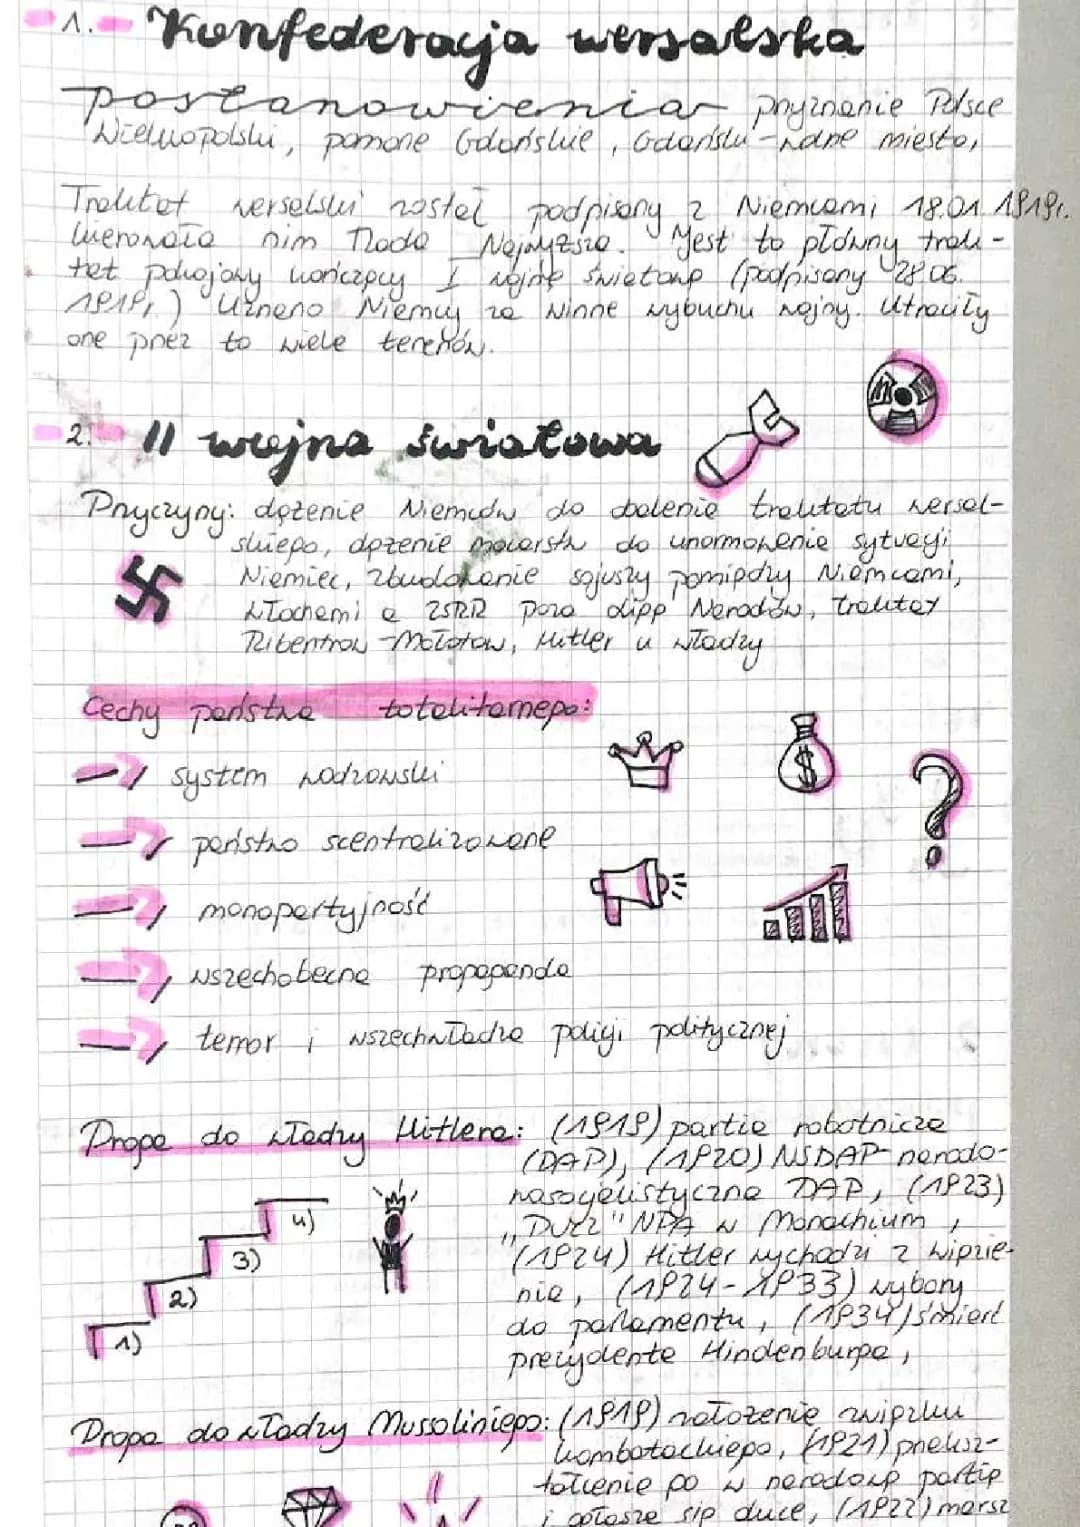 1. Konfederacja wersalska
postanowienia przyznanie Polsce
Wielkopolski, pomorze Gdańskie, Gdańsk-wolne miasto,
Traktat wersalski został podpisany z Niemcami 18.01.1919r.
kierowała nim Rada Najwyższa. Jest to główny trak-
tat pokojowy kończący I wojnę światową (podpisany 28.06.
1919r.) Uznano Niemcy za winne wybuchu wojny. Utraciły
one przez to wiele terenów.
2. II wojna światowa
Przyczyny: dążenie Niemców do obalenia traktatu wersal-
skiego, dążenie mocarstw do unormowania sytuacji
Niemiec, zbudowanie sojuszy pomiędzy Niemcami,
Włochami a ZSRR poza Ligą Narodów, traktat
Ribentrow-Mołotow, Hitler u władzy
Cechy państwa totalitarnego:
system wodzowski
państwo scentralizowane
monopartyjność
wszechobecna propaganda
terror i wszechwładza policji politycznej
$
?
Droga do władzy Hitlera: (1919) partia robotnicza
(DAP), (1920) NSDAP-narodo-
wosocjalistyczna DAP, (1923)
"NPA w Monachium,
(1924) Hitler wychodzi z więzie-
nia, (1924-1933) wybory
do parlamentu, (1934) śmierć
prezydenta Hindenburga,
1)
2)
3)
4)
Droga do władzy Mussoliniego: (1919) założenie związku
kombatackiego, (1921) przeksz-
tałcenie go w narodową partię
i ogłasza się duce, (1922) marsz